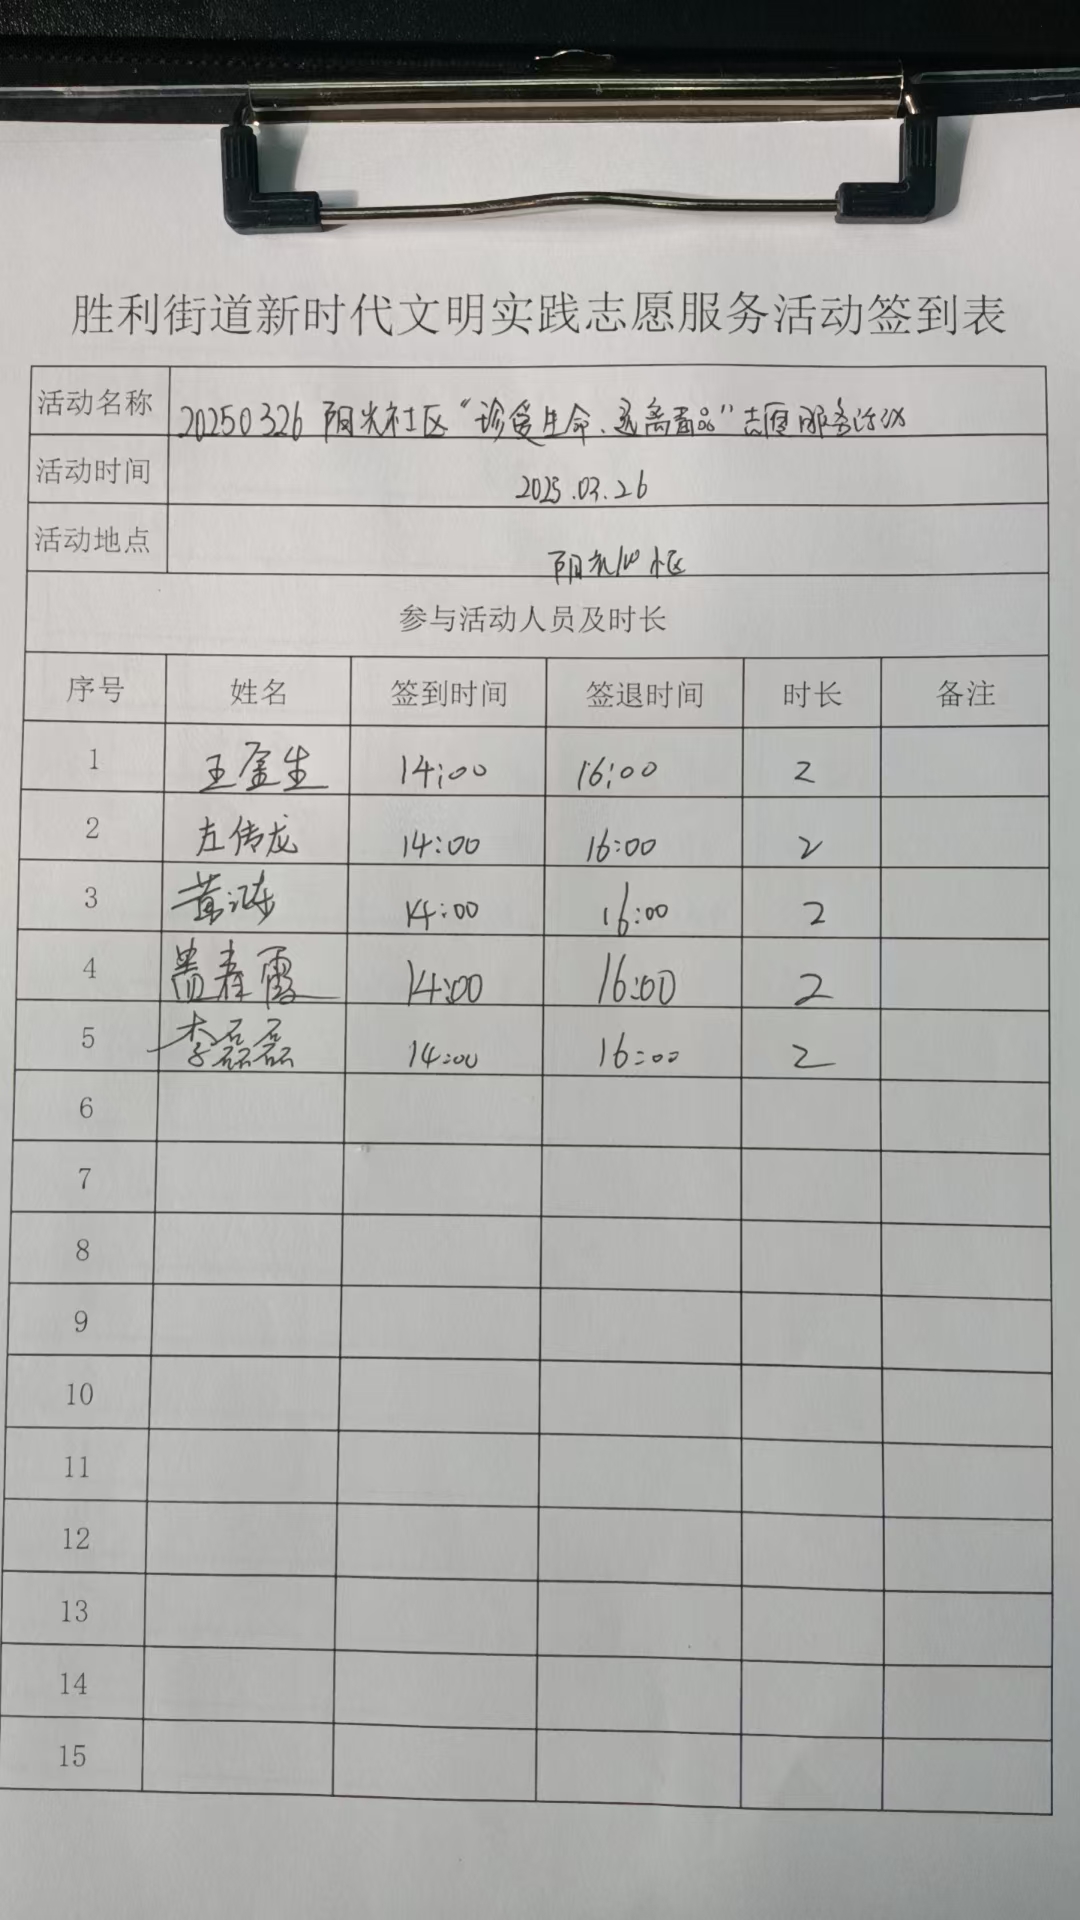 胜利街道新时代文明实践志愿服务活动签到表
活动名称 20250326 阳光社区“珍爱生命、远离毒品”志愿服务活动
活动时间 2025.03.26
活动地点 阳光社区
参与活动人员及时长
序号 姓名 签到时间 签退时间 时长 备注
1 王金生 14:00 16:00 2
2 左传龙 14:00 16:00 2
3 黄 14:00 16:00 2
4 春霞 14:00 16:00 2
5 李磊磊 14:00 16:00 2
6
7
8
9
10
11
12
13
14
15